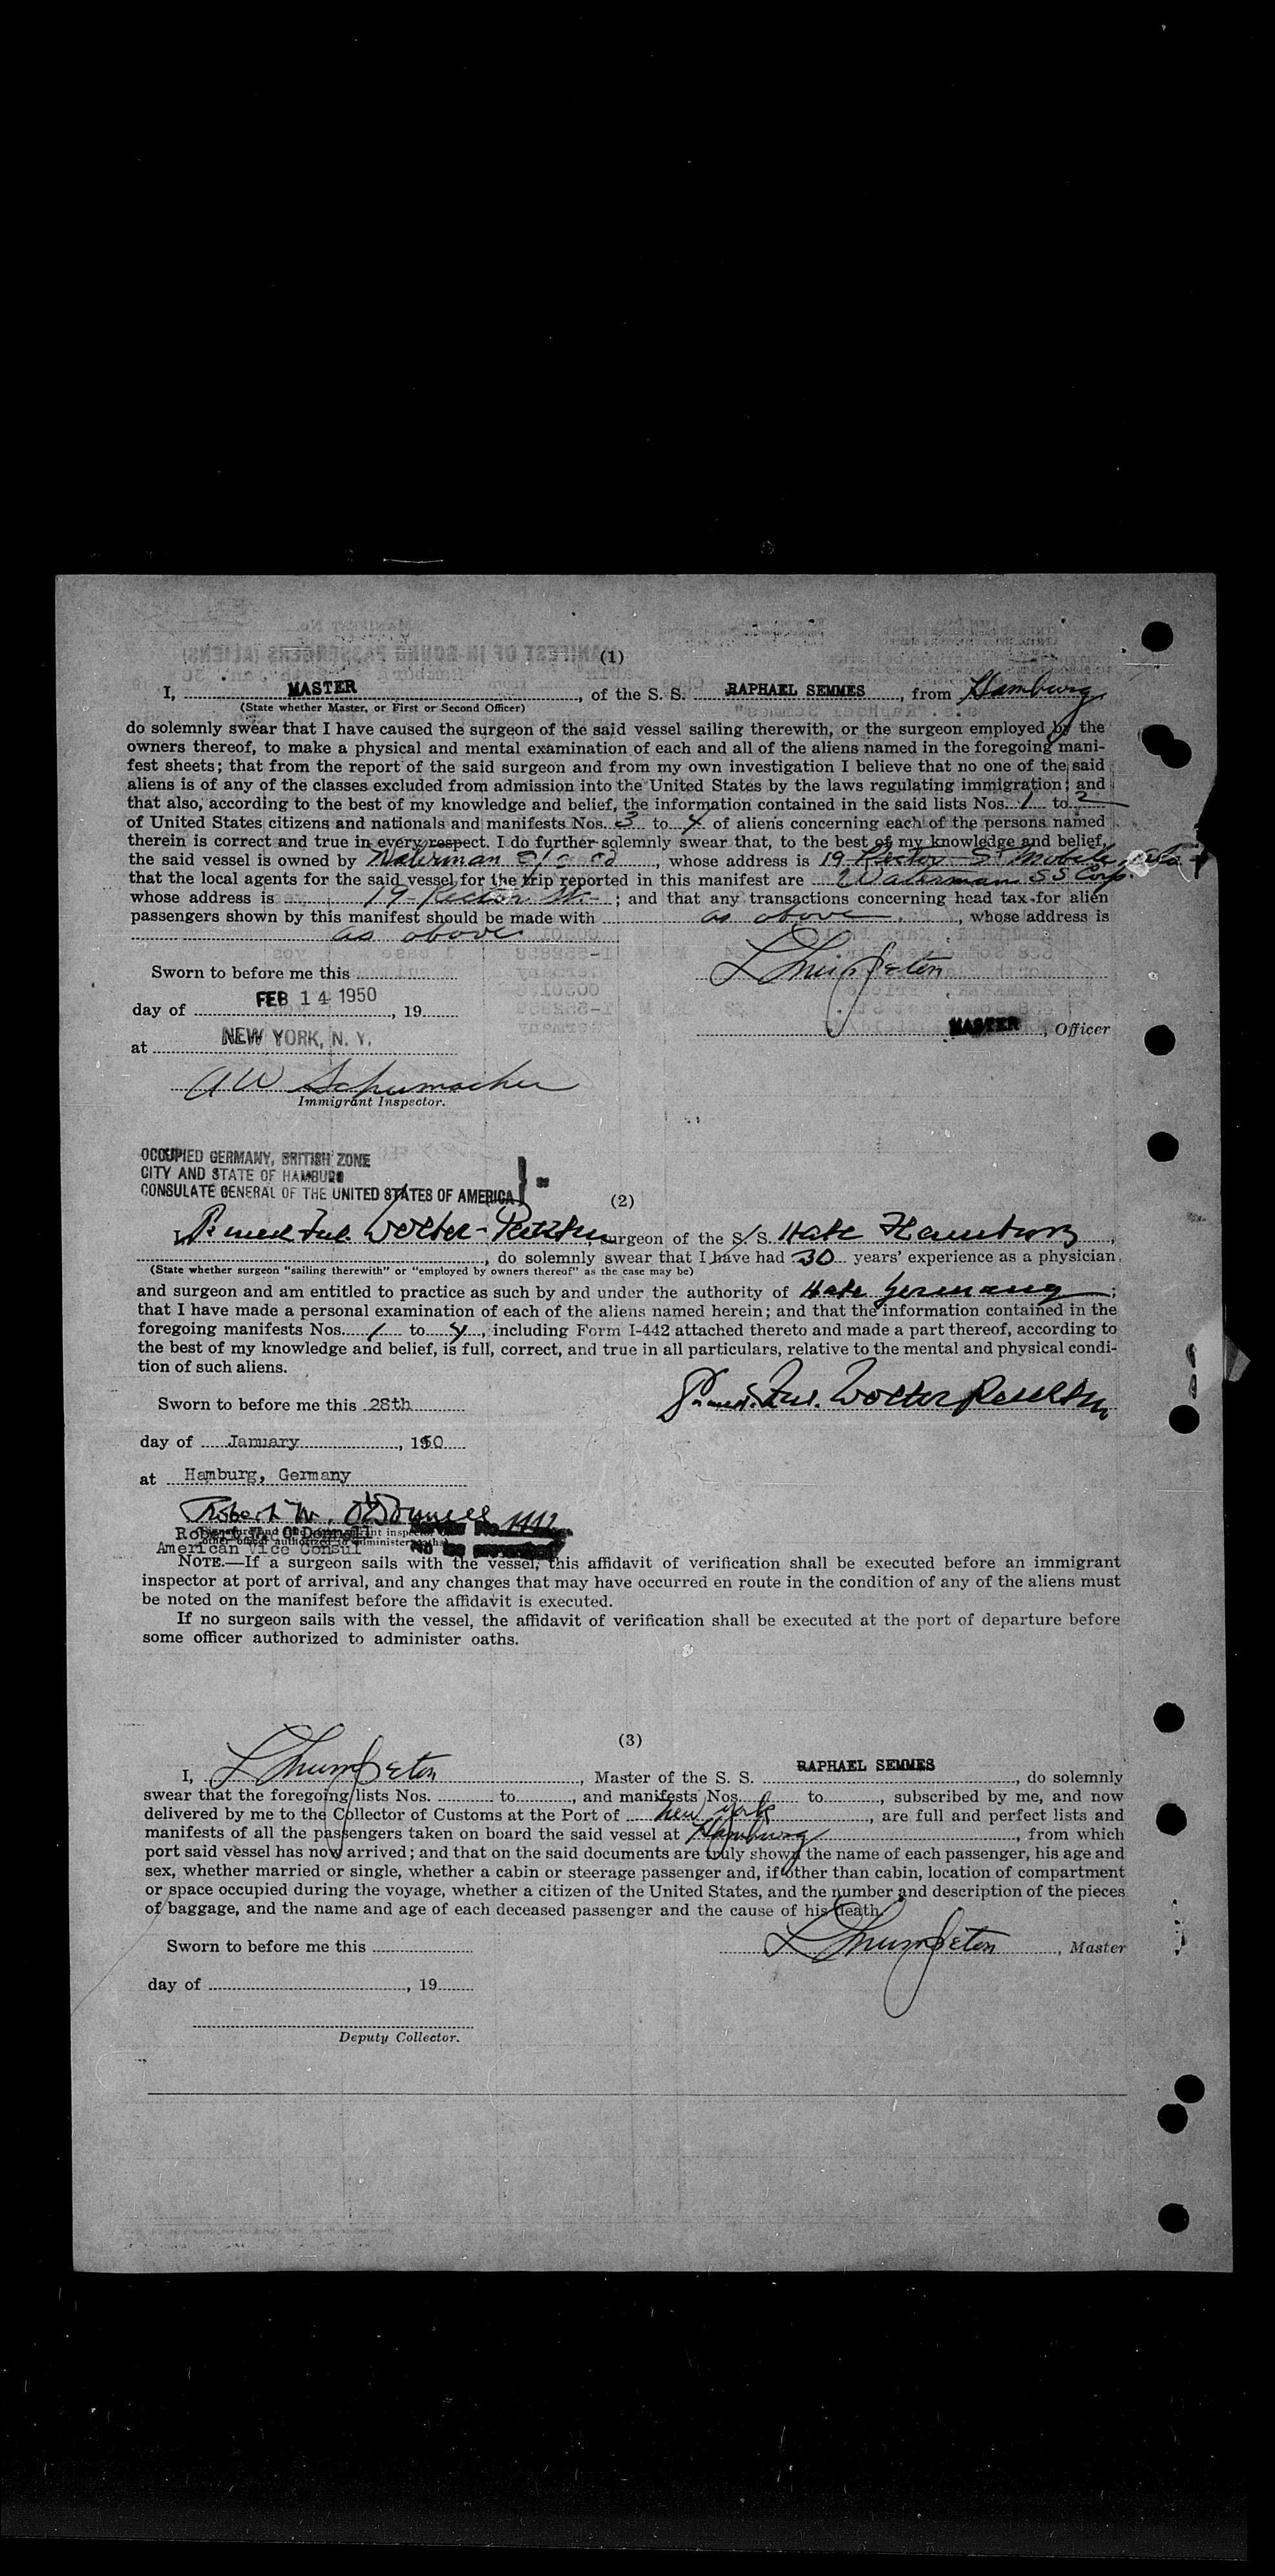 (1)
I, MASTER, of the S. S. RAPHAEL SEMMES, from Hamburg
(State whether Master, or First or Second Officer)
do solemnly swear that I have caused the surgeon of the said vessel sailing therewith, or the surgeon employed by the
owners thereof, to make a physical and mental examination of each and all of the aliens named in the foregoing mani-
fest sheets; that from the report of the said surgeon and from my own investigation I believe that no one of the said
aliens is of any of the classes excluded from admission into the United States by the laws regulating immigration; and
that also, according to the best of my knowledge and belief, the information contained in the said lists Nos. 1 to 2
of United States citizens and nationals and manifests Nos. 3 to 4 of aliens concerning each of the persons named
therein is correct and true in every respect. I do further solemnly swear that, to the best of my knowledge and belief,
the said vessel is owned by Waterman, whose address is 19 Rector St Mobile
that the local agents for the said vessel for the trip reported in this manifest are Waterman SS Corp.
whose address is 19 Rector St.; and that any transactions concerning head tax for alien
passengers shown by this manifest should be made with as above, whose address is
as above
Sworn to before me this
day of FEB 14 1950, 19
MASTER, Officer
at NEW YORK, N. Y.
A W Schumacher
Immigrant Inspector.
OCCUPIED GERMANY, BRITISH ZONE
CITY AND STATE OF HAMBURG
CONSULATE GENERAL OF THE UNITED STATES OF AMERICA } ss
(2)
I, surgeon of the S. S.
, do solemnly swear that I have had 30 years' experience as a physician
(State whether surgeon "sailing therewith" or "employed by owners thereof" as the case may be)
and surgeon and am entitled to practice as such by and under the authority of Germany;
that I have made a personal examination of each of the aliens named herein; and that the information contained in the
foregoing manifests Nos. 1 to 4, including Form I-442 attached thereto and made a part thereof, according to
the best of my knowledge and belief, is full, correct, and true in all particulars, relative to the mental and physical condi-
tion of such aliens.
Sworn to before me this 28th
day of January, 1950
at Hamburg, Germany
Robert W. O'Donnell
Robert W. O'Donnell
American Vice Consul
NOTE.—If a surgeon sails with the vessel, this affidavit of verification shall be executed before an immigrant
inspector at port of arrival, and any changes that may have occurred en route in the condition of any of the aliens must
be noted on the manifest before the affidavit is executed.
If no surgeon sails with the vessel, the affidavit of verification shall be executed at the port of departure before
some officer authorized to administer oaths.
(3)
I, , Master of the S. S. RAPHAEL SEMMES, do solemnly
swear that the foregoing lists Nos. to, and manifests Nos. to, subscribed by me, and now
delivered by me to the Collector of Customs at the Port of New York, are full and perfect lists and
manifests of all the passengers taken on board the said vessel at Hamburg, from which
port said vessel has now arrived; and that on the said documents are truly shown the name of each passenger, his age and
sex, whether married or single, whether a cabin or steerage passenger and, if other than cabin, location of compartment
or space occupied during the voyage, whether a citizen of the United States, and the number and description of the pieces
of baggage, and the name and age of each deceased passenger and the cause of his death.
Sworn to before me this
, Master
day of , 19
Deputy Collector.